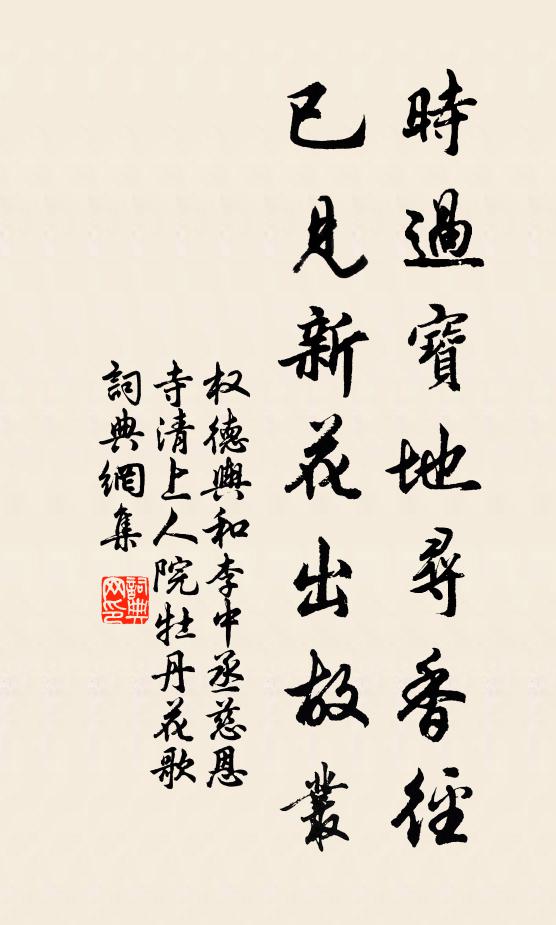 時過寶地尋香徑
已見新花出故叢
权德輿和李中丞慈恩
寺清上人院牡丹花歌
詞典網集
詞典網印